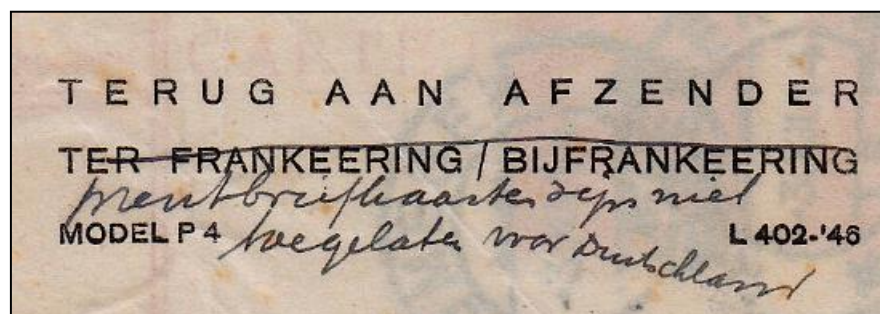 TERUG AAN AFZENDER
TER FRANKEERING / BIJFRANKEERING
prentbriefkaarten zijn niet
MODEL P 4 L 402-'46
toegelaten voor Deutschland